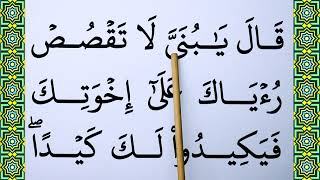 قَالَ يَٰبُنَيَّ لَا تَقْصُصْ
رُءْيَاكَ عَلَىٰٓ إِخْوَتِكَ
فَيَكِيدُوا۟ لَكَ كَيْدًاۖ